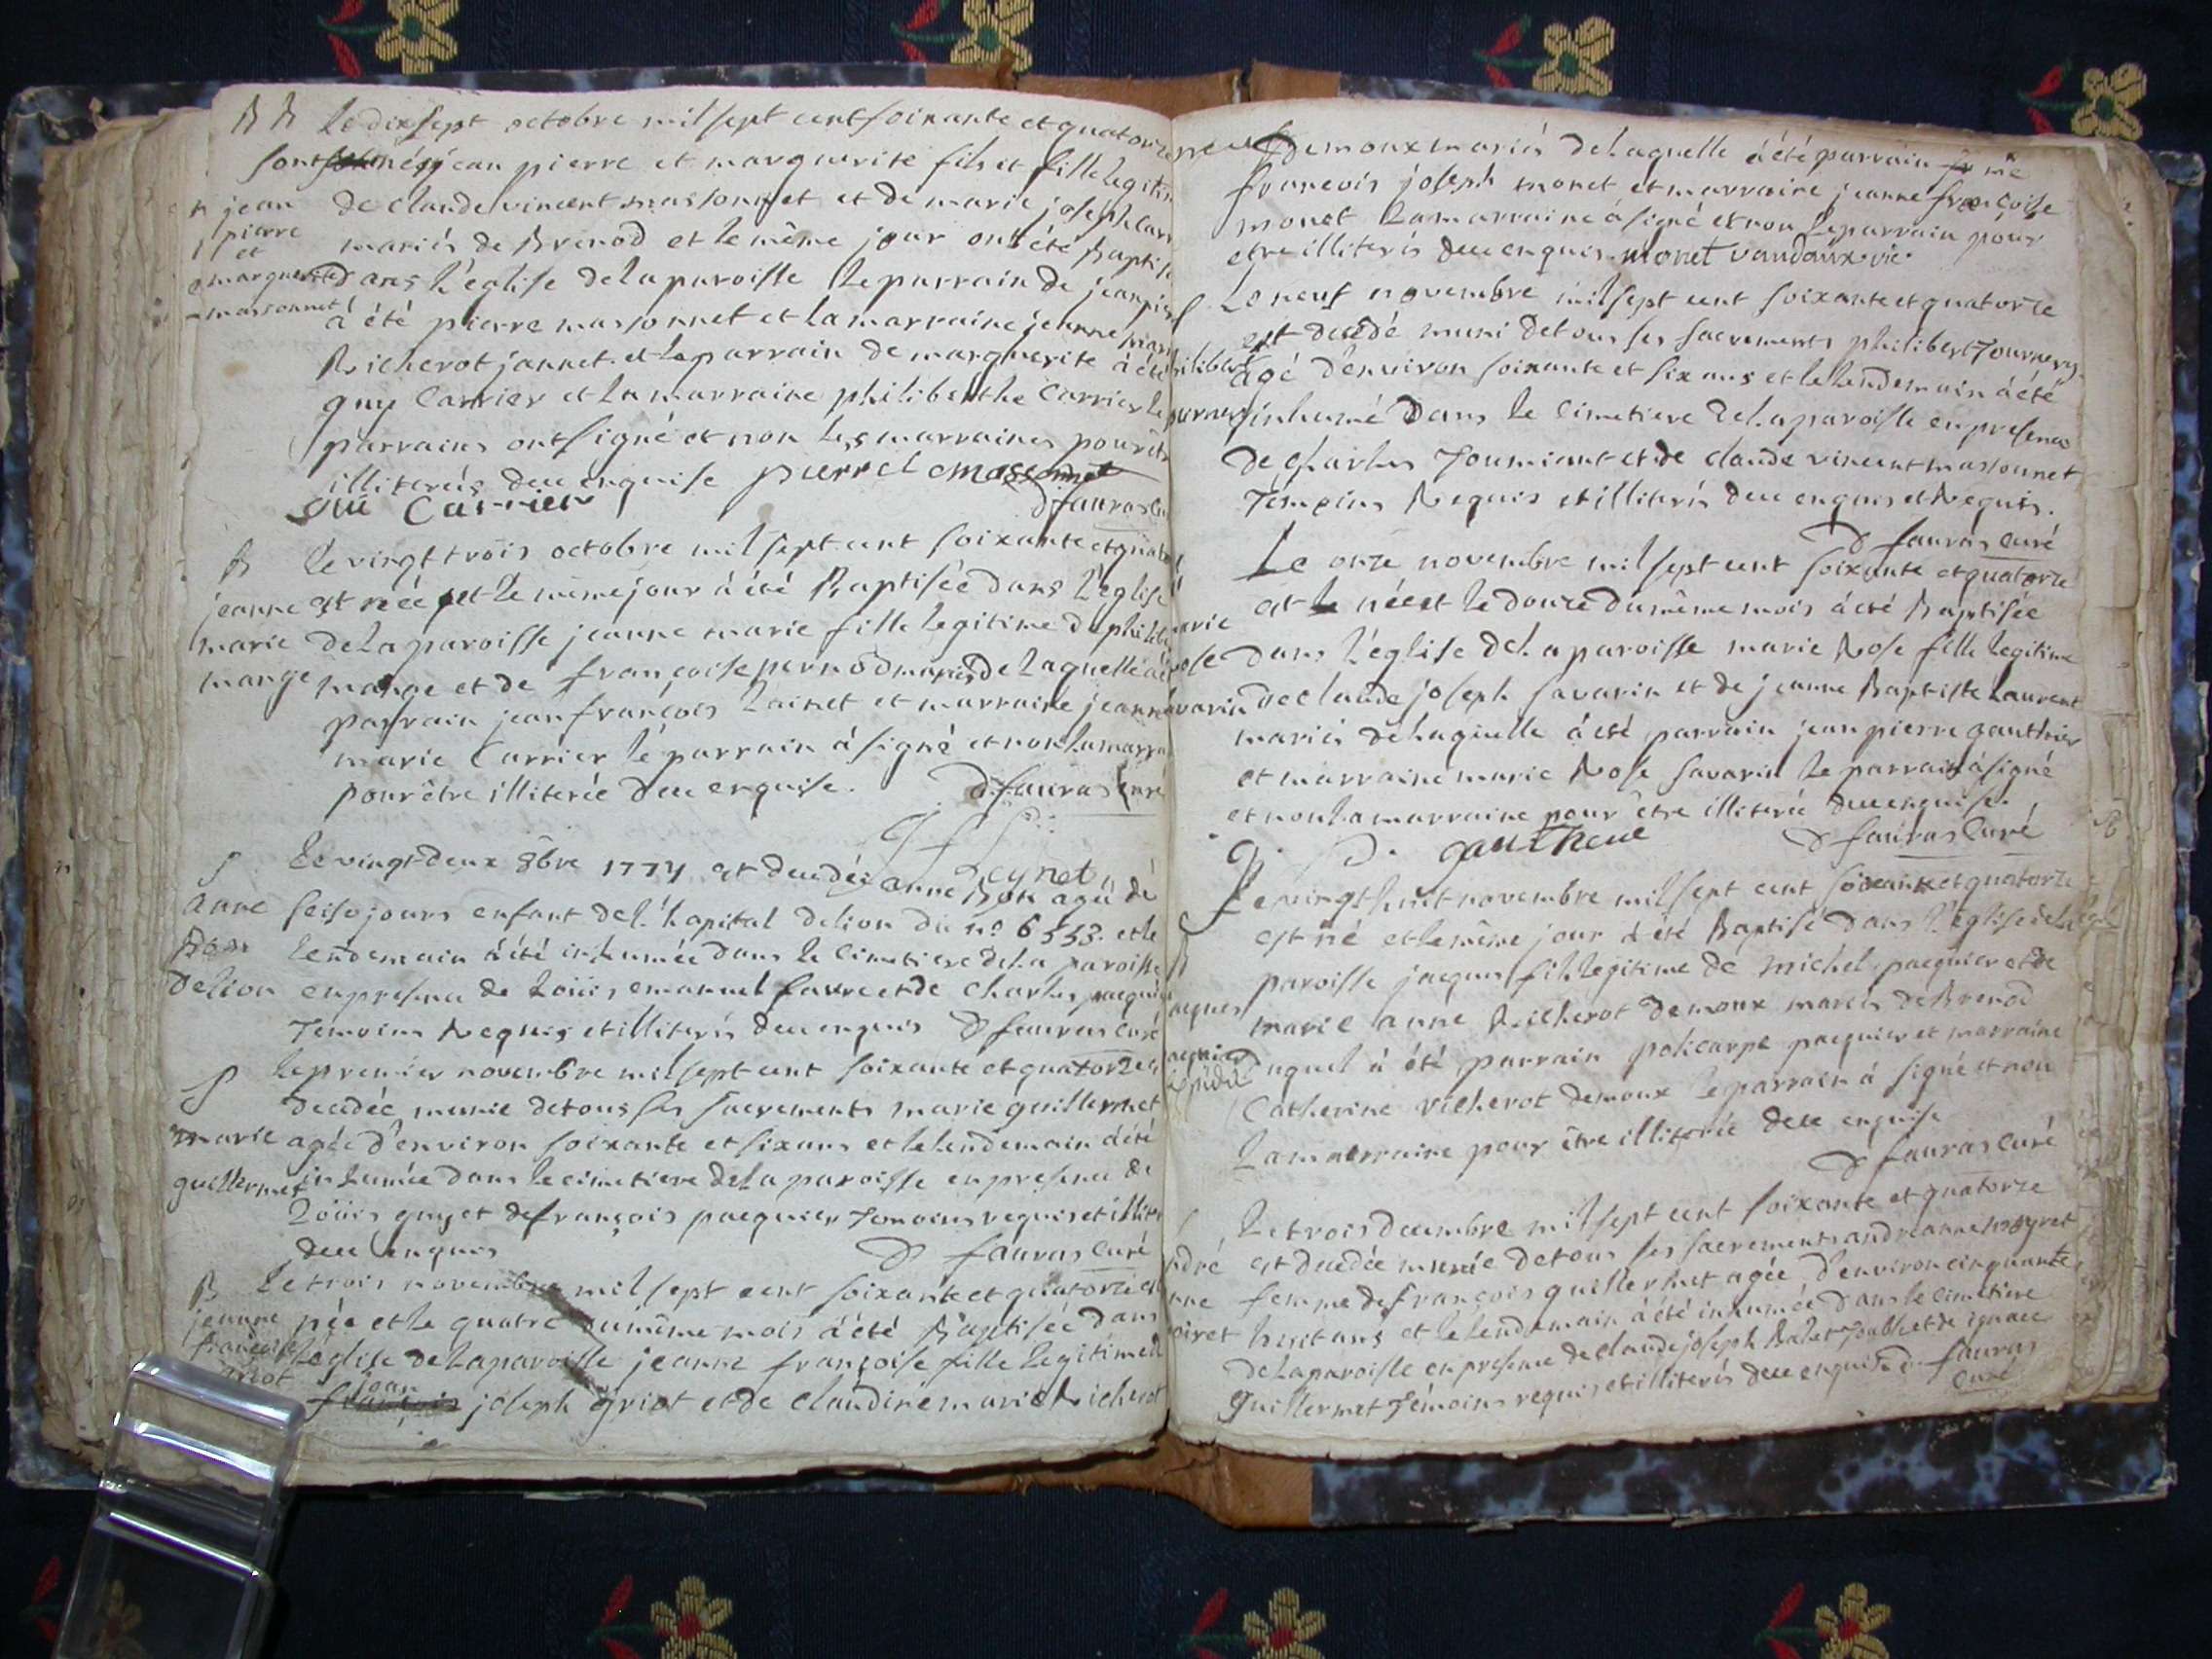 B B Le dix sept octobre mil sept cent soixante et quatorze
sont nés jean pierre et marguerite fils et fille legitim
jean pierre et marguerite massonnet
de claude vincent massonnet et de marie josephe carr
mariés de Brenod et le même jour ont été Baptis
dans l'eglise de la paroisse le parrain de jean pie
á été pierre massonnet et la marraine jeanne mari
Richerot jannet. et le parrain de marguerite á été
guy Carrier et la marraine philiberthe Carrier le
parrains ont signé et non les marraines pour êtr
illiterées dece enquise pierre massonnet
Gui Carrier d fauras cu
B Le vingt trois octobre mil sept cent soixante et quato
jeanne marie mange
est née et le même jour á été Baptisée dans l'eglise
de la paroisse jeanne marie fille legitime de philib
mange et de françoise pernod mariés de laquelle á é
parrain jean françois Lainet et marraine jeanne
marie Carrier le parrain á signé et non la marra
pour être illiterée dece enquise. d fauras curé
j f Reynet
S Le vingt deux 8bre 1774 est decedée anne Bon agée de
anne Bon de lion
seise jours enfant de l'hopital de lion du n° 6553. et le
lendemain á été inhumée dans le cimetiere de la paroisse
en presence de Loüis emanuel favre et de charles pacqui
Temoins Requis et illiterés dece enquis d fauras curé
S Le premier novembre mil sept cent soixante et quatorze
marie guillermet
decedée munie de tous ses sacrements marie guillermet
agée d'environ soixante et six ans et le lendemain á été
inhumée dans le cimetiere de la paroisse en presence de
Loüis guy et de françois pacquier Temoins requis et illiter
dece enquis d fauras curé
B Le trois novembre mil sept cent soixante et quatorze est
jeanne françoise griot
née et le quatre du même mois á été Baptisée dans
l'eglise de la paroisse jeanne françoise fille legitime de
jean
françois joseph griot et de claudine marie Richerot
demoux mariés de laquelle á été parrain
françois joseph monet et marraine jeanne françoise
monet la marraine á signé et non le parrain pour
etre illiterés dece enquis. monet vaudaux vic.
Le neuf novembre mil sept cent soixante et quatorze
est decedé muni de tous ses sacrements philibert Tournery
agé d'environ soixante et six ans et le lendemain á été
inhumé dans le cimetiere de la paroisse en presence
de charles Joumiant et de claude vincent massonnet
Temoins Requis et illiterés dece enquis et Requis.
d fauras curé
Le onze novembre mil sept cent soixante et quatorze
est née et le douze du même mois á été Baptisée
dans l'eglise de la paroisse marie Rose fille legitime
de claude joseph savarin et de jeanne Baptiste Laurent
mariés de laquelle á été parrain jean pierre gauthier
et marraine marie Rose savarin le parrain á signé
et non la marraine pour être illiterée dece enquise.
d fauras curé
Le vingt huit novembre mil sept cent soixante et quatorze
est né et le même jour á été Baptisé dans l'eglise de la
paroisse jacques fils legitime de michel pacquier et de
marie anne Richerot demoux mariés de Brenod
duquel á été parrain policarpe pacquier et marraine
Catherine richerot demoux le parrain á signé et non
la marraine pour être illiterée dece enquise
d fauras curé
Le trois decembre mil sept cent soixante et quatorze
est decedée munie de tous ses sacrements andréanne moyret
femme de françois guillermet agée d'environ cinquante
huit ans et le lendemain á été inhumée dans le cimetiere
de la paroisse en presence de claude joseph Balet et de ignace
guillermet Témoins requis et illiterés dece enquis d fauras
curé